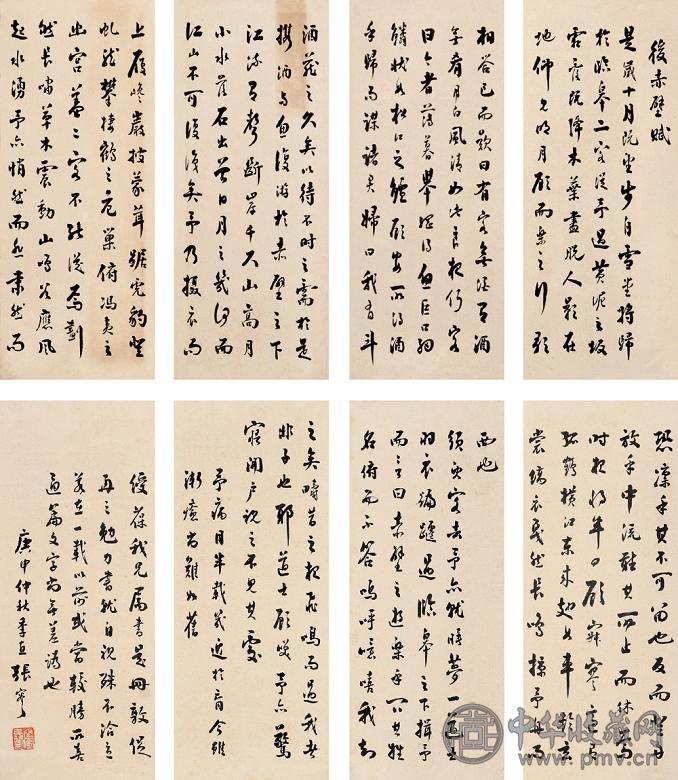 後赤壁賦
是歲十月既望步自雪堂將歸
於臨皋二客從予過黃泥之坂
霜露既降木葉盡脫人影在
地仰見明月顧而樂之行歌
相答已而歎曰有客無酒有酒
無肴月白風清如此良夜何客
曰今者薄暮舉網得魚巨口細
鱗狀如松江之鱸顧安所得酒
乎歸而謀諸婦曰我有斗
酒藏之久矣以待不時之需於是
攜酒與魚復游於赤壁之下
江流有聲斷岸千尺山高月
小水落石出曾日月之幾何而
江山不可復矣予乃攝衣而
上履巉巖披蒙茸踞虎豹登
虬龍攀棲鶻之危巢俯馮夷之
幽宮蓋二客不能從焉劃
然長嘯草木震動山鳴谷應風
起水湧予亦悄然而悲肅然而
恐凜乎其不可留也反而登舟
放乎中流聽其所止而休焉
時夜將半四顧寂寥適有
孤鶴橫江東來翅如車輪玄
裳縞衣戛然長鳴掠予舟而
西也
須臾客去予亦就睡夢一道士
羽衣蹁躚過臨皋之下揖予
而言曰赤壁之遊樂乎問其姓
名俯而不答嗚呼噫嘻我知
之矣疇昔之夜飛鳴而過我者
非子也耶道士顧笑予亦驚
寤開戶視之不見其處
予病目半載幾近於盲今雖
漸瘥尚難如舊
綬葆我兄屬書是冊敦促
再三勉力書就自視殊不洽意
若在一載以前或當較勝而
通篇文字尚無差誤也
庚申仲秋季直張謇
中华收藏网
www.pmv.cn